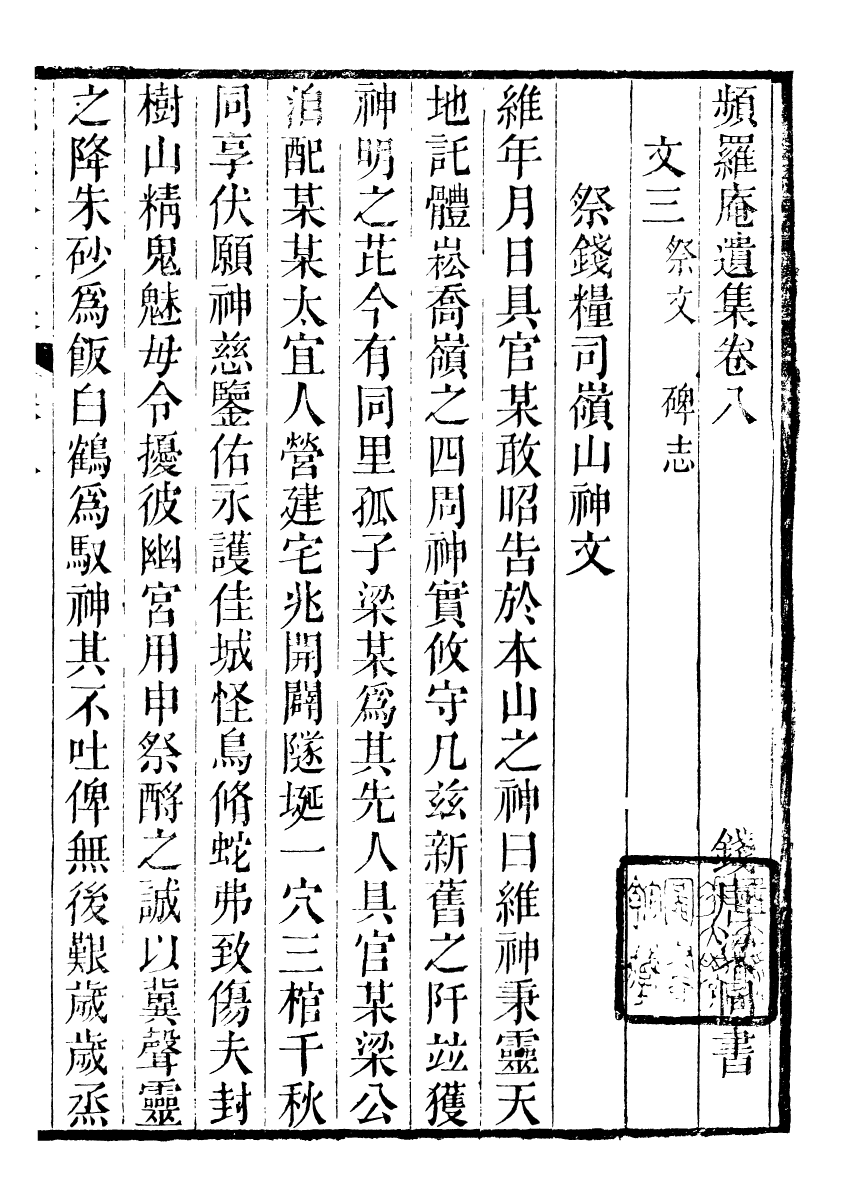 頻羅庵遺集卷八
錢唐梁同書
文三 祭文 碑志
祭錢糧司嶺山神文
維年月日具官某敢昭告於本山之神曰維神秉靈天
地託體崧喬嶺之四周神實攸守凡兹新舊之阡竝獲
神明之芘今有同里孤子梁某爲其先人具官某梁公
洎配某某太宜人營建宅兆開闢隧埏一穴三棺千秋
同享伏願神慈鑒佑永護佳城怪鳥脩蛇弗致傷夫封
樹山精鬼魅毋令擾彼幽宮用申祭酹之誠以冀聲靈
之降朱砂爲飯白鶴爲馭神其不吐俾無後艱歲歲烝